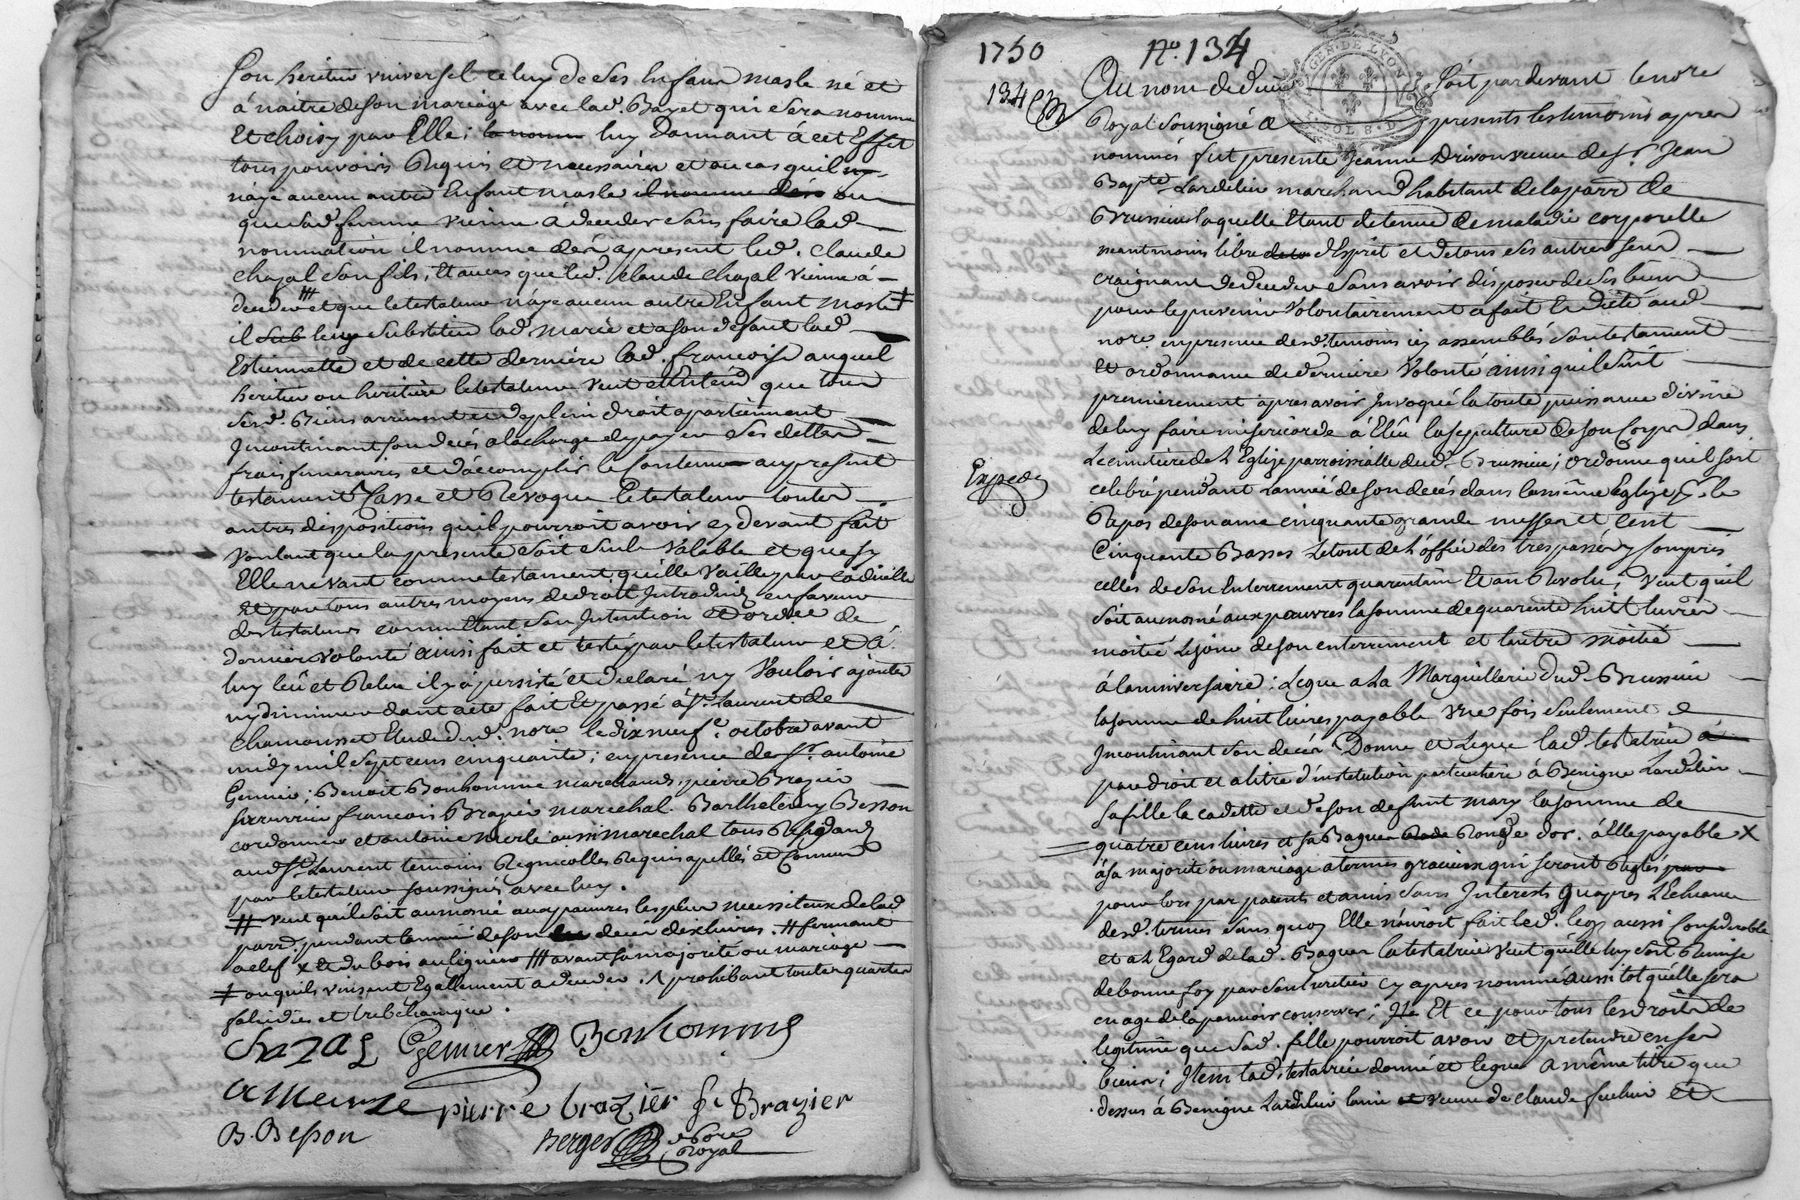 Son heritier universel celuy de ses Enfans masle né et
à naitre de son mariage avec lad. Bazet qui sera nommé
Et choisy par Elle; luy Donnant à cet Effet
tous pouvoirs Requis et necessaires et au cas qu'il
n'aye aucun autre Enfant masle ou
que sad. femme vienne à deceder sans faire lad.
nomination il nomme dès apresent led. Claude
Chazal son fils, Et au cas que led. Claude Chazal vienne à
deceder et que le testateur n'aye aucun autre Enfant masle
il substitue lad. Marie et a son defaut lad.
Estiennette et de cette derniere lad. francoise auquel
heritier ou heritiere le testateur veut et Entend que tous
sesd. Biens arrivent et de plein droit apartiennent
Incontinant son decès a la charge de payer ses dettes
frais funeraires et d'accomplir le Contenu au present
testament Casse et Revoque le testateur toutes
autres dispositions qu'il pourroit avoir cy devant fait
voulant que la presente soit seule valable et que sy
Elle ne vaut comme testament qu'elle vaille par Codicille
Et par tous autres moyens de droit Introduits en faveur
des testateurs comme Etant son Intention Et ordre de
derniere volonté ainsi fait et testé par le testateur et à
luy leü et Releu il y a persisté et declaré n'y vouloir ajouter
ny diminuer dont acte fait Et passé à St. Laurent de
Chamousset Etude dud. nore. le dix neuf e. octobre avant
midy mil sept cens cinquante; en presence de Sr. antoine
Gennier; Benoit Bonhomme marchands, pierre Brazier
serrurier francois Brazier marechal. Barthelemy Besson
cordonnier et antoine merle aussi marechal tous Residants
aud. St. Laurent temoins Regnicolles Requis apellés
par le testateur soussignés avec luy.
# veut qu'il soit aumoné aux pauvres les plus necessiteux de lad.
parr. pendant l'année de son deces dix livres. # fermant
a clef x Et du bois # avant sa majorité ou mariage
ou qu'ils vinsent Egallement a deceder. prohibant toutes quartes
falcidies et trebelianique.
Chazal Genier Bonhomme
a Merle pierre brazier f. Brazier
B. Besson Berger nore Royal
1750 No. 134
134
GEN. DE LYON
SOLS. D.
Au nom de dieu Soit pardevant le nore
Royal soussigné & presents les temoins apres
nommés fut presente Jeanne Drivon veuve de Sr. Jean
Bapte. Lardelier marchand habitant de la parr. de
Brussieu laquelle Etant detenue de maladie corporelle
neantmoins libre d'Esprit et de tous ses autres sens
craignant de deceder sans avoir disposé de ses biens
pour le prevenir volontairement a fait Et dicté aud.
nore. en presence desd. temoins icy assemblés son testament
Et ordonnance de derniere volonté ainsi qu'il suit
premierement apres avoir Invoqué la toute puissance divine
de luy faire misericorde à Eleu la sepulture de son Corps dans
Le cimetiere de L'Eglise parroissialle dud. Brussieu; ordonne qu'il soit
Expedé
celebré pendant l'année de son decès dans la même Eglise pr. le
Repos de son ame cinquante grandes messes et Cent
Cinquante Basses Le tout de L'office des trespassés y Compris
celles de son Enterrement quarantain Et an Revolu; veut qu'il
soit aumoné aux pauvres la somme de quarente huit livres
moitié le jour de son enterrement et l'autre moitié
à l'anniversaire: Legue a La Marguillerie dud. Brussieu
la somme de huit livres payable une fois seulement &
Incontinant son decès. Donne et Legue lad. testatrice
par droit et a titre d'institution particuliere à Benigne Lardelier
sa fille la cadette et de son defunt mary la somme de
quatre cens livres et sa Bague Ronde d'or, à Elle payable x
à sa majorité ou mariage a termes gracieux qui seront Reglés
pour lors par parents et amis sans Interests qu'apres L'Echeance
desd. termes sans quoy Elle n'auroit fait led. legs aussi considerable
et a L'Egard de lad. Bague la testatrice veut qu'elle luy soit Remise
de bonne foy par son heritier cy apres nommé aussi tot qu'elle sera
en age de la pouvoir conserver; Et ce pour tous les droits de
legitime que sad. fille pourroit avoir et pretendre en ses
biens; Item lad. testatrice donne et legue a même titre que
dessus à Benigne Lardelier l'ainée veuve de claude et